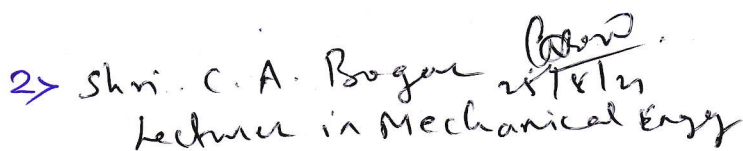 2> Shri. C. A. Bogar 25/8/21
Lecturer in Mechanical Engg